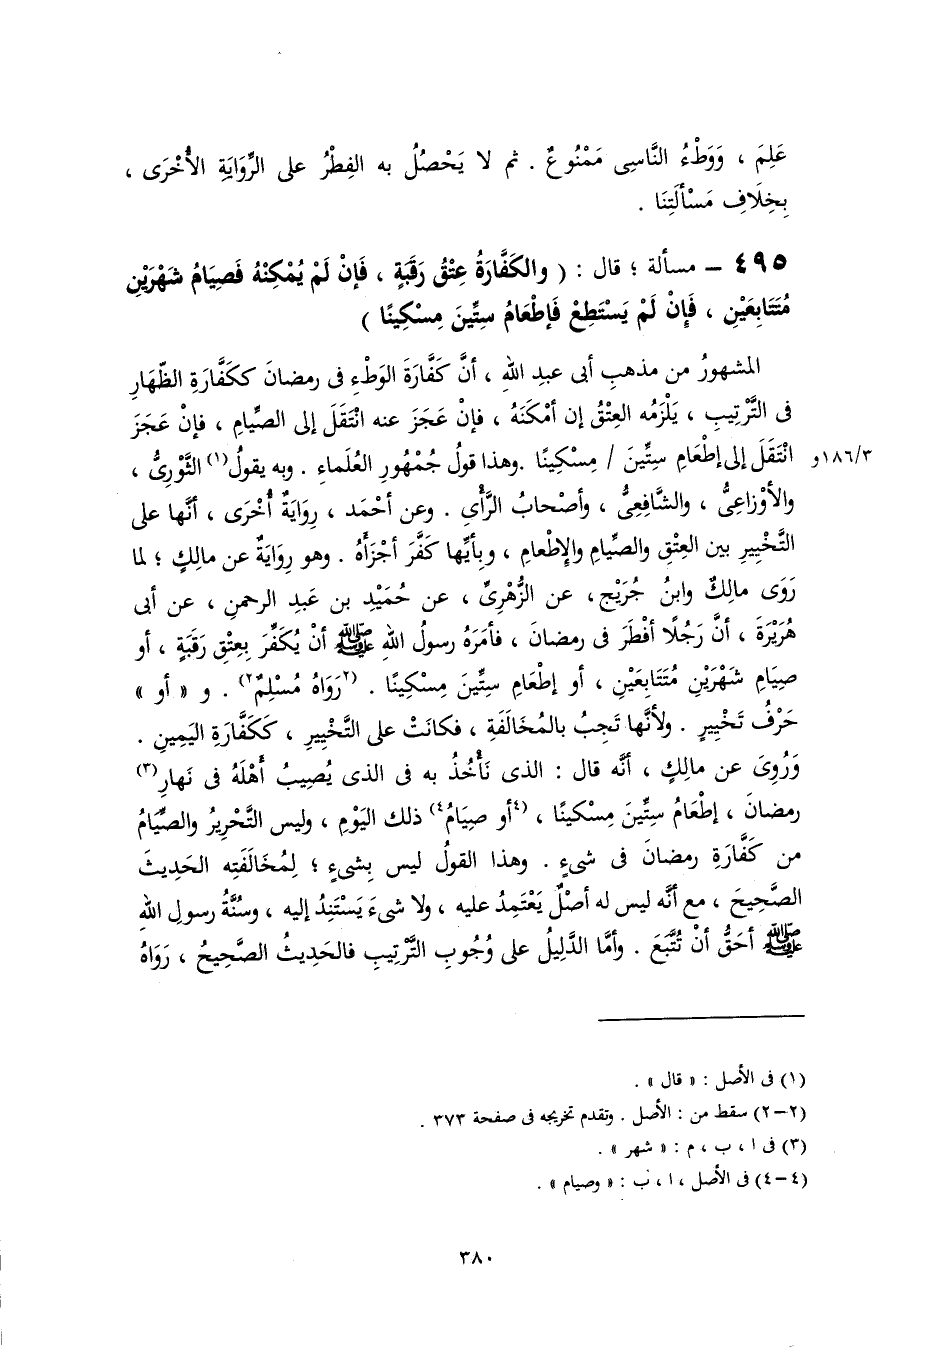 عَلِمَ ، وَوَطْءُ النَّاسِى مَمْنُوعٌ . ثم لا يَحْصُلُ به الفِطْرُ على الرِّوَايَةِ الأُخْرَى ،
بِخِلَافِ مَسْأَلَتِنَا .
٤٩٥ – مسألة ؛ قال : ( والكَفَّارَةُ عِتْقُ رَقَبَةٍ ، فَإنْ لَمْ يُمْكِنْهُ فَصِيَامُ شَهْرَيْنِ
مُتَتَابِعَيْنِ ، فَإِنْ لَمْ يَسْتَطِعْ فَإطْعَامُ سِتِّينَ مِسْكِينًا )
المشهورُ من مذهبِ أبى عبدِ اللهِ ، أنَّ كَفَّارَةَ الوَطْءِ فى رمضانَ ككَفَّارَةِ الظِّهَارِ
فى التَّرْتِيبِ ، يَلْزَمُه العِتْقُ إن أمْكَنَهُ ، فإنْ عَجَزَ عنه انْتَقَلَ إلى الصِّيامِ ، فإنْ عَجَزَ
انْتَقَلَ إلى إطْعَامِ سِتِّينَ / مِسْكِينًا . وهذا قولُ جُمْهُورِ العُلَماءِ . وبه يقولُ(١) الثَّوْرِىُّ ، ١٨٦/٣و
والأوْزاعِىُّ ، والشَّافِعِىُّ ، وأصْحابُ الرَّأْىِ . وعن أحْمَد ، رِوَايَةٌ أُخْرَى ، أنَّها على
التَّخْيِيرِ بين العِتْقِ والصِّيامِ والإِطْعامِ ، وبِأيِّها كَفَّرَ أجْزَأَهُ . وهو رِوَايَةٌ عن مالِكٍ ؛ لما
رَوَى مالِكٌ وابنُ جُرَيْجٍ ، عن الزُّهْرِىِّ ، عن حُمَيْدِ بن عَبدِ الرحمنِ ، عن أبى
هُرَيْرَةَ ، أنَّ رَجُلًا أفْطَرَ فى رمضانَ ، فأمَرَهُ رسولُ اللهِ ﷺ أنْ يُكَفِّرَ بِعِتْقِ رَقَبَةٍ ، أو
صِيَامِ شَهْرَيْنِ مُتَتَابِعَيْنِ ، أو إطْعَامِ سِتِّينَ مِسْكِينًا . (٢رَوَاهُ مُسْلِمٌ٢) . و « أو »
حَرْفُ تَخْيِيرٍ . ولأنَّها تَجِبُ بالمُخَالَفَةِ ، فكانَتْ على التَّخْيِيرِ ، ككَفَّارَةِ اليَمِينِ .
وَرُوِىَ عن مالِكٍ ، أنَّه قال : الذى نَأْخُذُ به فى الذى يُصِيبُ أَهْلَهُ فى نَهارِ(٣)
رمضانَ ، إطْعَامُ سِتِّينَ مِسْكِينًا ، (٤أو صِيَامُ٤) ذلك اليَوْمِ ، وليس التَّحْرِيرُ والصِّيَامُ
من كَفَّارَةِ رمضانَ فى شىءٍ . وهذا القولُ ليس بِشىءٍ ؛ لِمُخَالَفَتِه الحَدِيثَ
الصَّحِيحَ ، مع أنَّه ليس له أصْلٌ يَعْتَمِدُ عليه ، ولا شىءَ يَسْتَنِدُ إليه ، وسُنَّةُ رسولِ اللهِ
ﷺ أحَقُّ أنْ تُتَّبَعَ . وأمَّا الدَّلِيلُ على وُجُوبِ التَّرْتِيبِ فالحَدِيثُ الصَّحِيحُ ، رَوَاهُ
(١) فى الأصل : « قال » .
(٢–٢) سقط من : الأصل . وتقدم تخريجه فى صفحة ٣٧٣ .
(٣) فى ا ، ب ، م : « شهر » .
(٤–٤) فى الأصل ، ا ، ب : « وصيام » .
٣٨٠